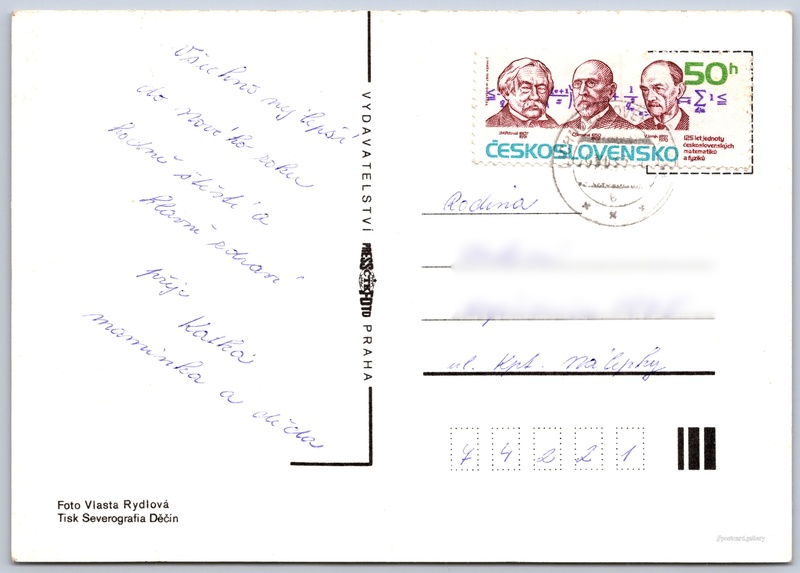 Všechno nejlepší
do nového roku
hodně štěstí a
hlavně zdraví
přeje Katka
maminka a děda
Foto Vlasta Rydlová
Tisk Severografia Děčín
VYDAVATELSTVÍ PRESSFOTO ČTK PRAHA
50h
ČESKOSLOVENSKO
125 let jednoty
československých
matematiků
a fyziků
6
Rodina
ul. Kpt. Nálepky
74221
//postcart.gallery